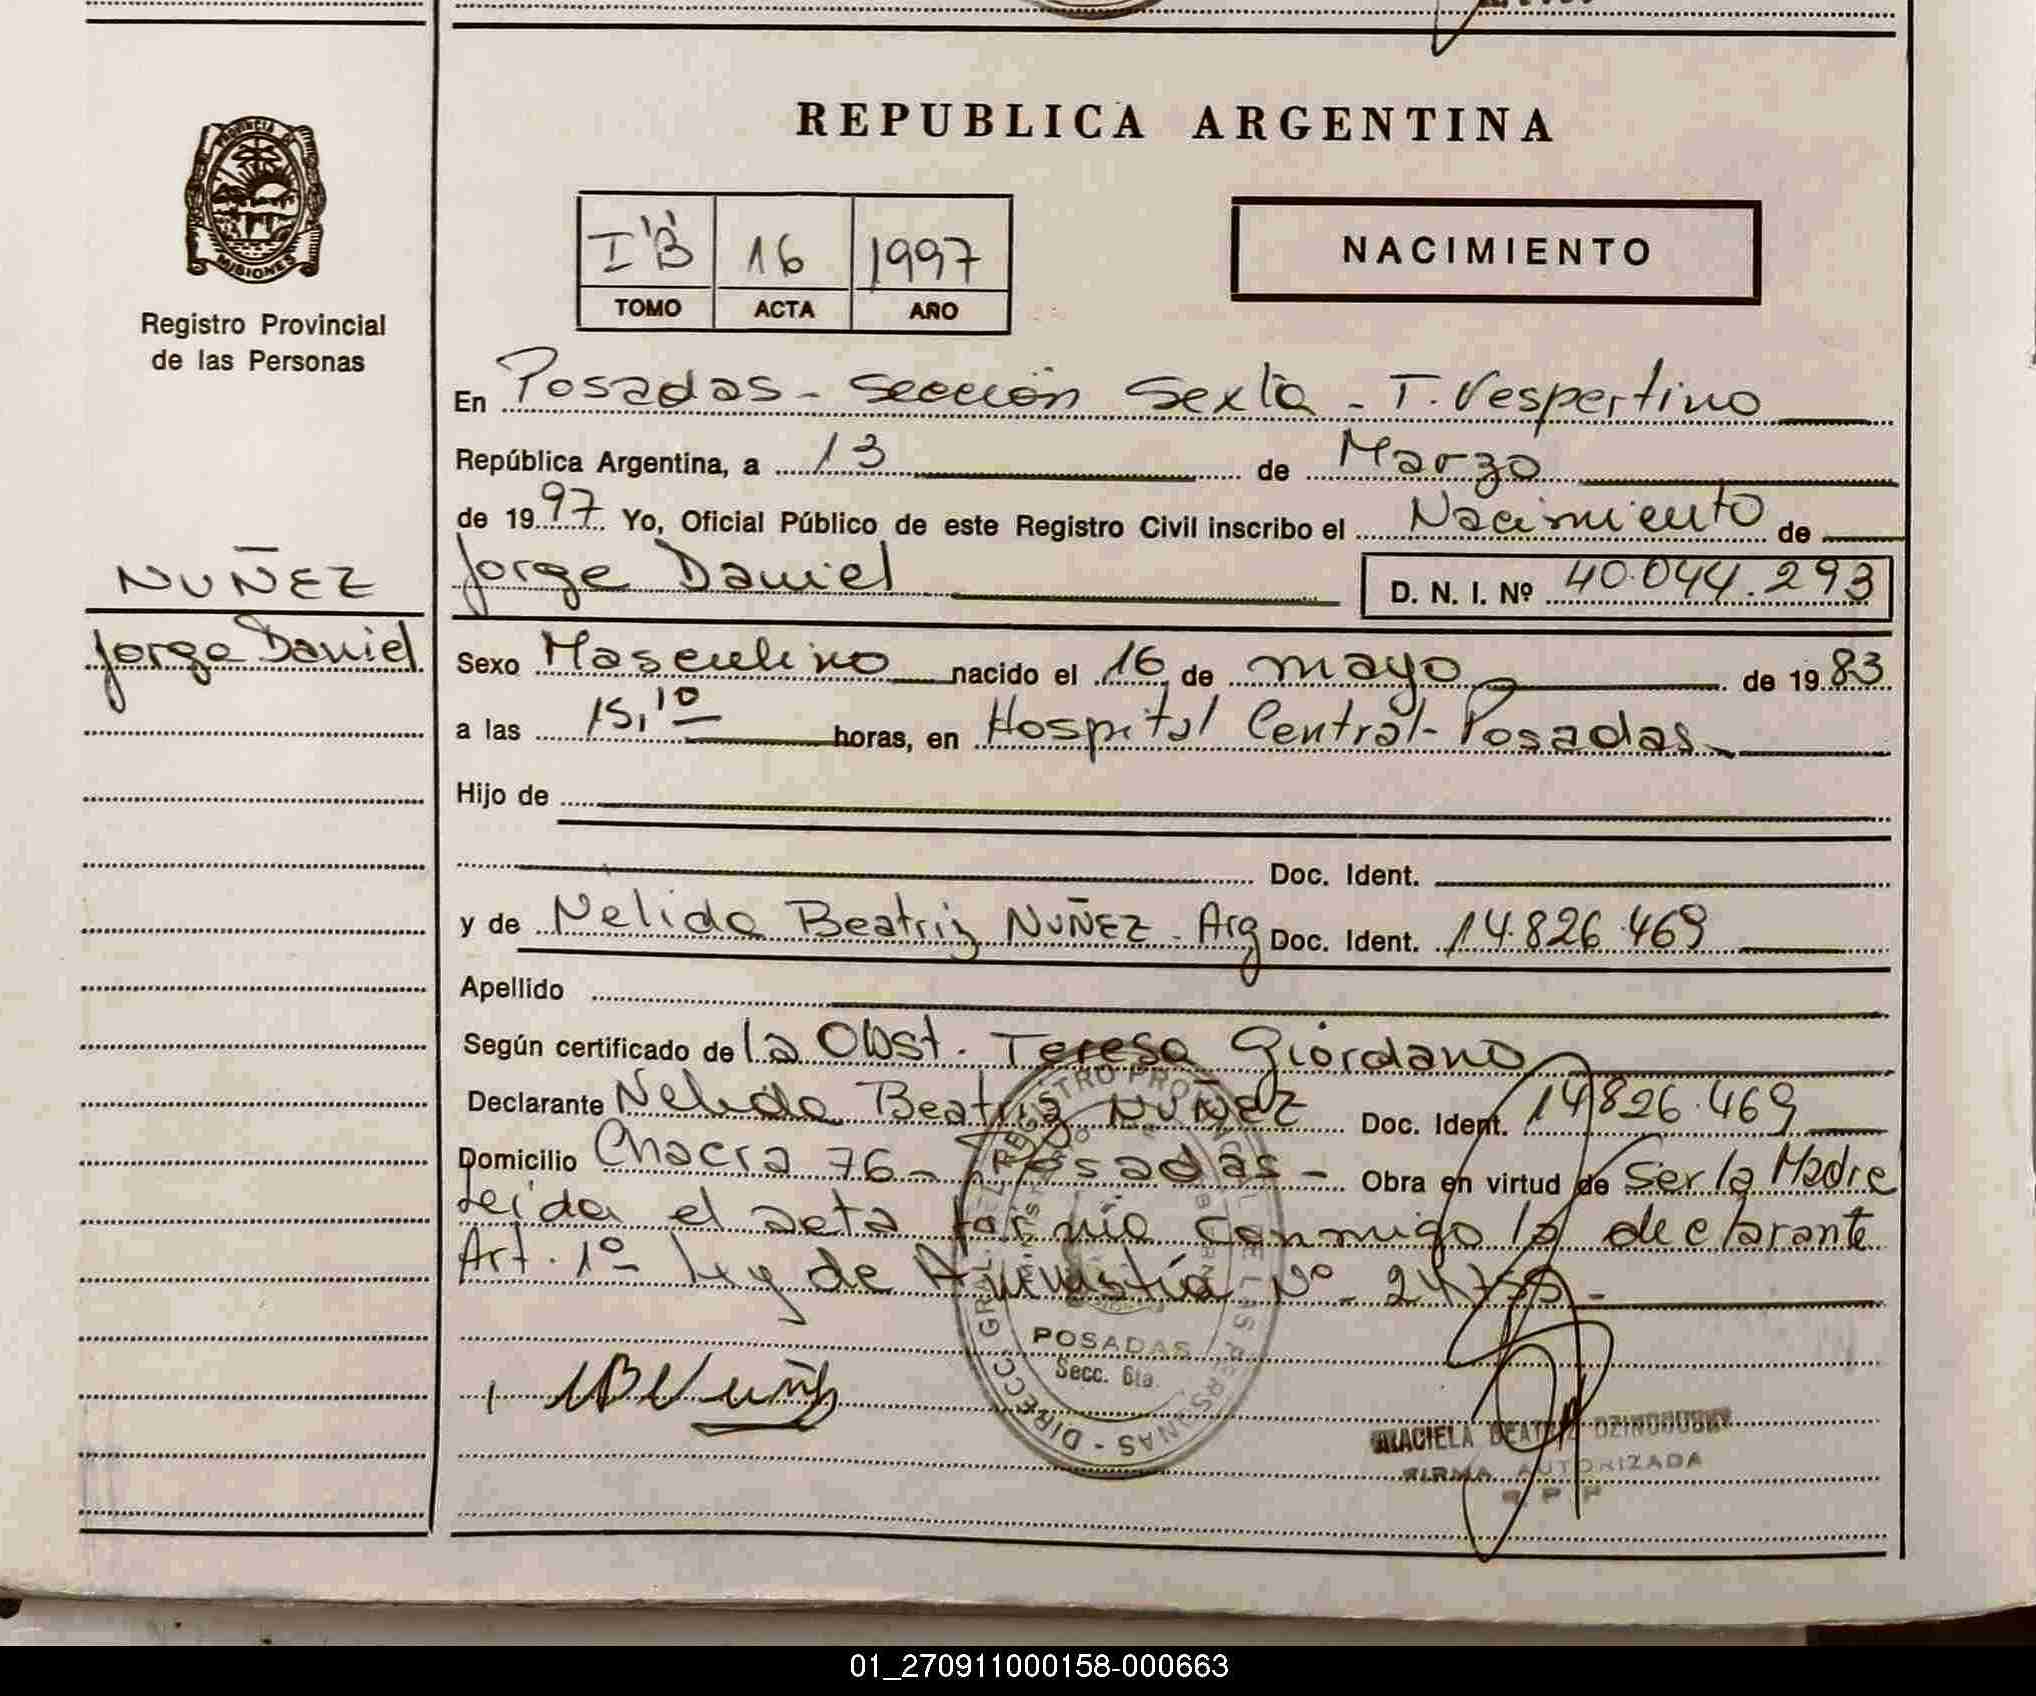 REPUBLICA ARGENTINA
PROVINCIA DE
MISIONES
Registro Provincial
de las Personas
I "B" 16 1997
TOMO ACTA AÑO
NACIMIENTO
En Posadas - Sección Sexta - T. Vespertino
República Argentina, a 13 de Marzo
de 1997 Yo, Oficial Público de este Registro Civil inscribo el Nacimiento de
NUÑEZ
Jorge Daniel
Jorge Daniel D. N. I. Nº 40.044.293
Sexo Masculino nacido el 16 de mayo de 1983
a las 15,10 horas, en Hospital Central - Posadas
Hijo de
Doc. Ident.
y de Nelida Beatriz NUÑEZ - Arg Doc. Ident. 14.826.469
Apellido
Según certificado de la Obst. Teresa Giordano
Declarante Nelida Beatriz NUÑEZ Doc. Ident. 14826.469
Domicilio Chacra 76 - Posadas - Obra en virtud de Ser la Madre
Leida el acta firmó conmigo la declarante
Art. 1º Ley de Amnistía Nº
POSADAS
Secc. 6ta.
GRACIELA BEATRIZ
FIRMA AUTORIZADA
01_270911000158-000663